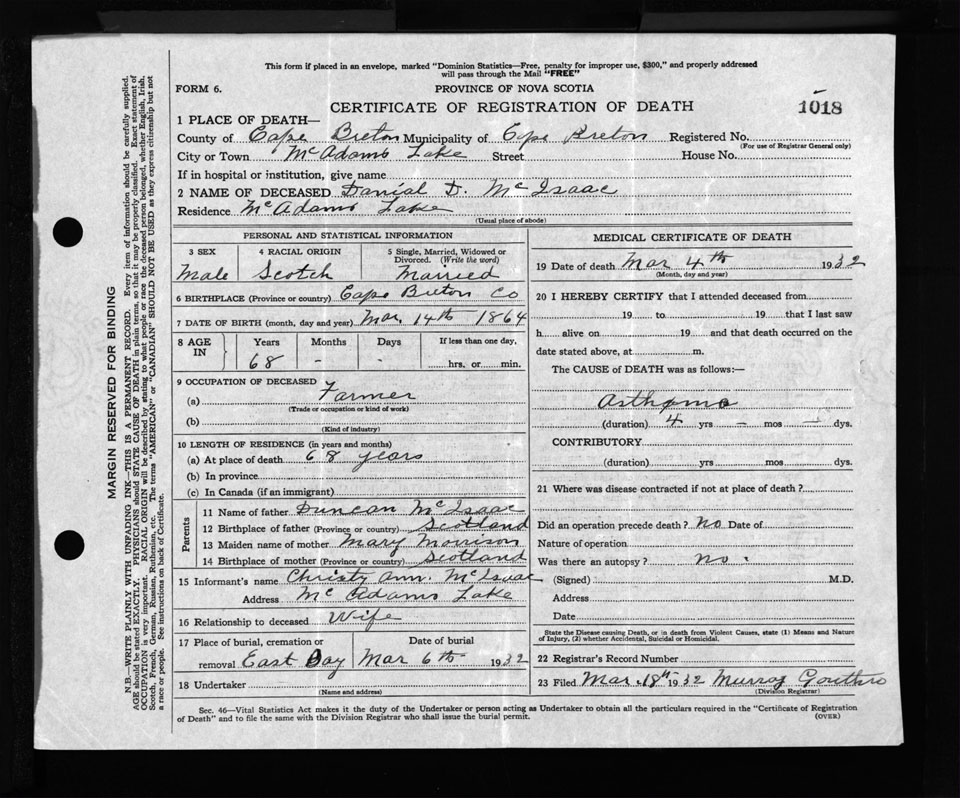 This form if placed in an envelope, marked "Dominion Statistics—Free, penalty for improper use, $300," and properly addressed
will pass through the Mail "FREE"
FORM 6.
PROVINCE OF NOVA SCOTIA
CERTIFICATE OF REGISTRATION OF DEATH
1018
1 PLACE OF DEATH—
County of Cape Breton Municipality of Cape Breton Registered No.
(For use of Registrar General only)
City or Town McAdams Lake Street House No.
If in hospital or institution, give name
2 NAME OF DECEASED Danial D. McIsaac
Residence McAdams Lake
(Usual place of abode)
PERSONAL AND STATISTICAL INFORMATION
3 SEX 4 RACIAL ORIGIN 5 Single, Married, Widowed or
Divorced. (Write the word)
Male Scotch Married
6 BIRTHPLACE (Province or country) Cape Breton Co
7 DATE OF BIRTH (month, day and year) Mar. 14th 1864
8 AGE IN Years Months Days If less than one day,
68 - - hrs. or min.
9 OCCUPATION OF DECEASED
(a) Farmer
(Trade or occupation or kind of work)
(b)
(Kind of industry)
10 LENGTH OF RESIDENCE (in years and months)
(a) At place of death 68 years
(b) In province
(c) In Canada (if an immigrant)
Parents
11 Name of father Duncan McIsaac
12 Birthplace of father (Province or country) Scotland
13 Maiden name of mother Mary Morrison
14 Birthplace of mother (Province or country) Scotland
15 Informant's name Christy Ann. McIsaac
Address McAdams Lake
16 Relationship to deceased Wife
17 Place of burial, cremation or Date of burial
removal East Bay Mar 6th 1932
18 Undertaker
(Name and address)
MEDICAL CERTIFICATE OF DEATH
19 Date of death Mar 4th 1932
(Month, day and year)
20 I HEREBY CERTIFY that I attended deceased from
19 to 19 that I last saw
h alive on 19 and that death occurred on the
date stated above, at m.
The CAUSE of DEATH was as follows:—
Asthama
(duration) 4 yrs - mos - dys.
CONTRIBUTORY
(duration) yrs mos dys.
21 Where was disease contracted if not at place of death?
Did an operation precede death? No Date of
Nature of operation
Was there an autopsy? no.
(Signed) M.D.
Address
Date
State the Disease causing Death, or in death from Violent Causes, state (1) Means and Nature
of Injury, (2) whether Accidental, Suicidal or Homicidal.
22 Registrar's Record Number
23 Filed Mar. 18th 1932 Murray Gouthro
(Division Registrar)
Sec. 46—Vital Statistics Act makes it the duty of the Undertaker or person acting as Undertaker to obtain all the particulars required in the "Certificate of Registration
of Death" and to file the same with the Division Registrar who shall issue the burial permit.
(OVER)
MARGIN RESERVED FOR BINDING
N.B.—WRITE PLAINLY WITH UNFADING INK—THIS IS A PERMANENT RECORD. Every item of information should be carefully supplied.
AGE should be stated EXACTLY. PHYSICIANS should STATE CAUSE OF DEATH in plain terms, so that it may be properly classified. Exact statement of
OCCUPATION is very important. RACIAL ORIGIN will be described by stating to what people or race the deceased person belonged, whether English, Irish,
Scotch, French, German, Russian, Ruthenian, etc. The terms "AMERICAN" or "CANADIAN" SHOULD NOT BE USED as they express citizenship but not
a race or people. See instructions on back of Certificate.